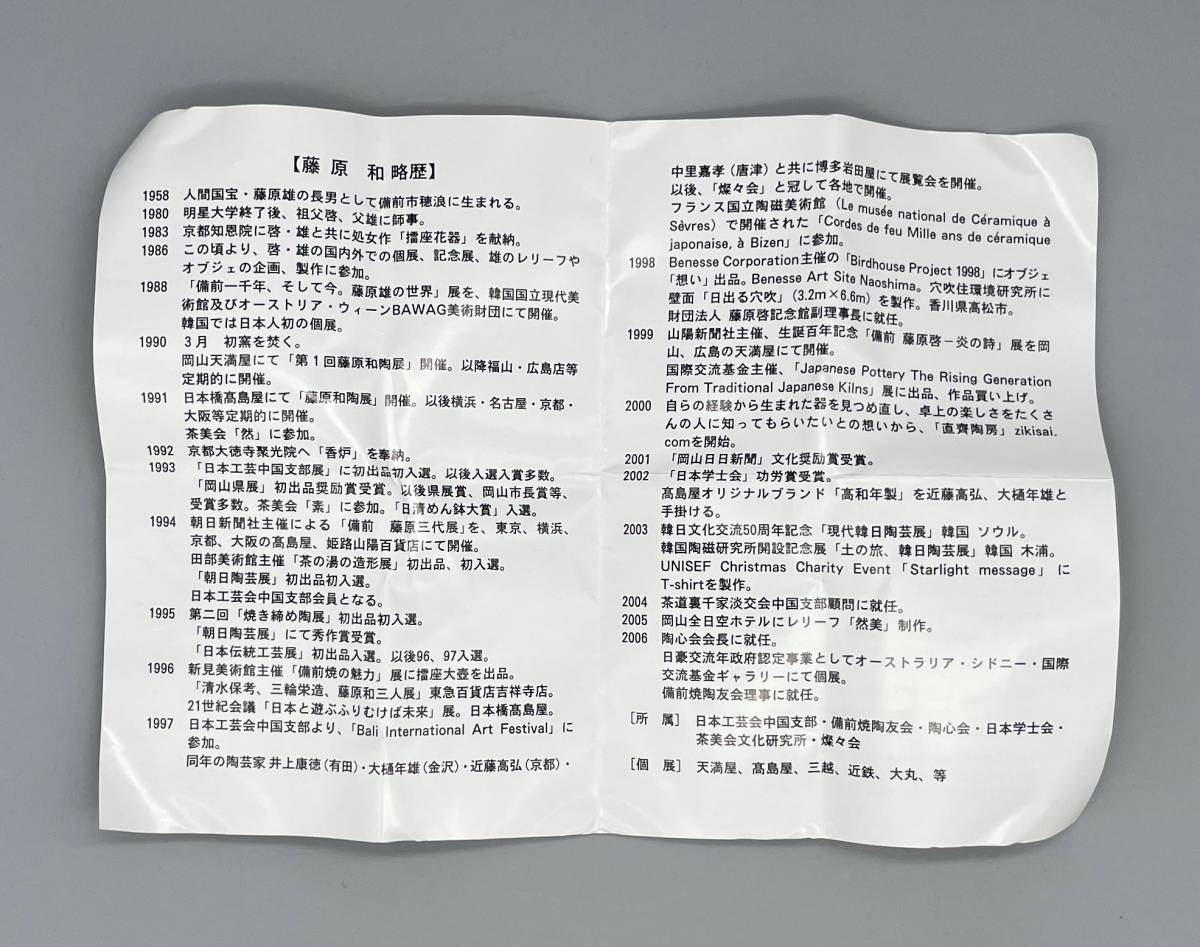 【藤原 和略歴】
1958 人間国宝・藤原雄の長男として備前市穂浪に生まれる。
1980 明星大学終了後、祖父啓、父雄に師事。
1983 京都知恩院に啓・雄と共に処女作「擂座花器」を献納。
1986 この頃より、啓・雄の国内外での個展、記念展、雄のレリーフや
オブジェの企画、製作に参加。
1988 「備前一千年、そして今。藤原雄の世界」展を、韓国国立現代美
術館及びオーストリア・ウィーンBAWAG美術財団にて開催。
韓国では日本人初の個展。
1990 3月 初窯を焚く。
岡山天満屋にて「第1回藤原和陶展」開催。以降福山・広島店等
定期的に開催。
1991 日本橋髙島屋にて「藤原和陶展」開催。以後横浜・名古屋・京都・
大阪等定期的に開催。
茶美会「然」に参加。
1992 京都大徳寺聚光院へ「香炉」を奉納。
1993 「日本工芸中国支部展」に初出品初入選。以後入選入賞多数。
「岡山県展」初出品奨励賞受賞。以後県展賞、岡山市長賞等、
受賞多数。茶美会「素」に参加。「日清めん鉢大賞」入選。
1994 朝日新聞社主催による「備前 藤原三代展」を、東京、横浜、
京都、大阪の髙島屋、姫路山陽百貨店にて開催。
田部美術館主催「茶の湯の造形展」初出品、初入選。
「朝日陶芸展」初出品初入選。
日本工芸会中国支部会員となる。
1995 第二回「焼き締め陶展」初出品初入選。
「朝日陶芸展」にて秀作賞受賞。
「日本伝統工芸展」初出品入選。以後96、97入選。
1996 新見美術館主催「備前焼の魅力」展に擂座大壺を出品。
「清水保孝、三輪栄造、藤原和三人展」東急百貨店吉祥寺店。
21世紀会議「日本と遊ぶふりむけば未来」展。日本橋髙島屋。
1997 日本工芸会中国支部より、「Bali International Art Festival」に
参加。
同年の陶芸家 井上康徳(有田)・大樋年雄(金沢)・近藤高弘(京都)・
中里嘉孝(唐津)と共に博多岩田屋にて展覧会を開催。
以後、「燦々会」と冠して各地で開催。
フランス国立陶磁美術館(Le musée national de Céramique à
Sèvres)で開催された「Cordes de feu Mille ans de céramique
japonaise, à Bizen」に参加。
1998 Benesse Corporation主催の「Birdhouse Project 1998」にオブジェ
「想い」出品。Benesse Art Site Naoshima。穴吹住環境研究所に
壁面「日出る穴吹」(3.2m×6.6m)を製作。香川県高松市。
財団法人 藤原啓記念館副理事長に就任。
1999 山陽新聞社主催、生誕百年記念「備前 藤原啓－炎の詩」展を岡
山、広島の天満屋にて開催。
国際交流基金主催、「Japanese Pottery The Rising Generation
From Traditional Japanese Kilns」展に出品、作品買い上げ。
2000 自らの経験から生まれた器を見つめ直し、卓上の楽しさをたくさ
んの人に知ってもらいたいとの想いから、「直齊陶房」zikisai.
comを開始。
2001 「岡山日日新聞」文化奨励賞受賞。
2002 「日本学士会」功労賞受賞。
髙島屋オリジナルブランド「高和年製」を近藤高弘、大樋年雄と
手掛ける。
2003 韓日文化交流50周年記念「現代韓日陶芸展」韓国 ソウル。
韓国陶磁研究所開設記念展「土の旅、韓日陶芸展」韓国 木浦。
UNISEF Christmas Charity Event「Starlight message」に
T-shirtを製作。
2004 茶道裏千家淡交会中国支部顧問に就任。
2005 岡山全日空ホテルにレリーフ「然美」制作。
2006 陶心会会長に就任。
日豪交流年政府認定事業としてオーストラリア・シドニー・国際
交流基金ギャラリーにて個展。
備前焼陶友会理事に就任。
[所 属] 日本工芸会中国支部・備前焼陶友会・陶心会・日本学士会・
茶美会文化研究所・燦々会
[個 展] 天満屋、髙島屋、三越、近鉄、大丸、等